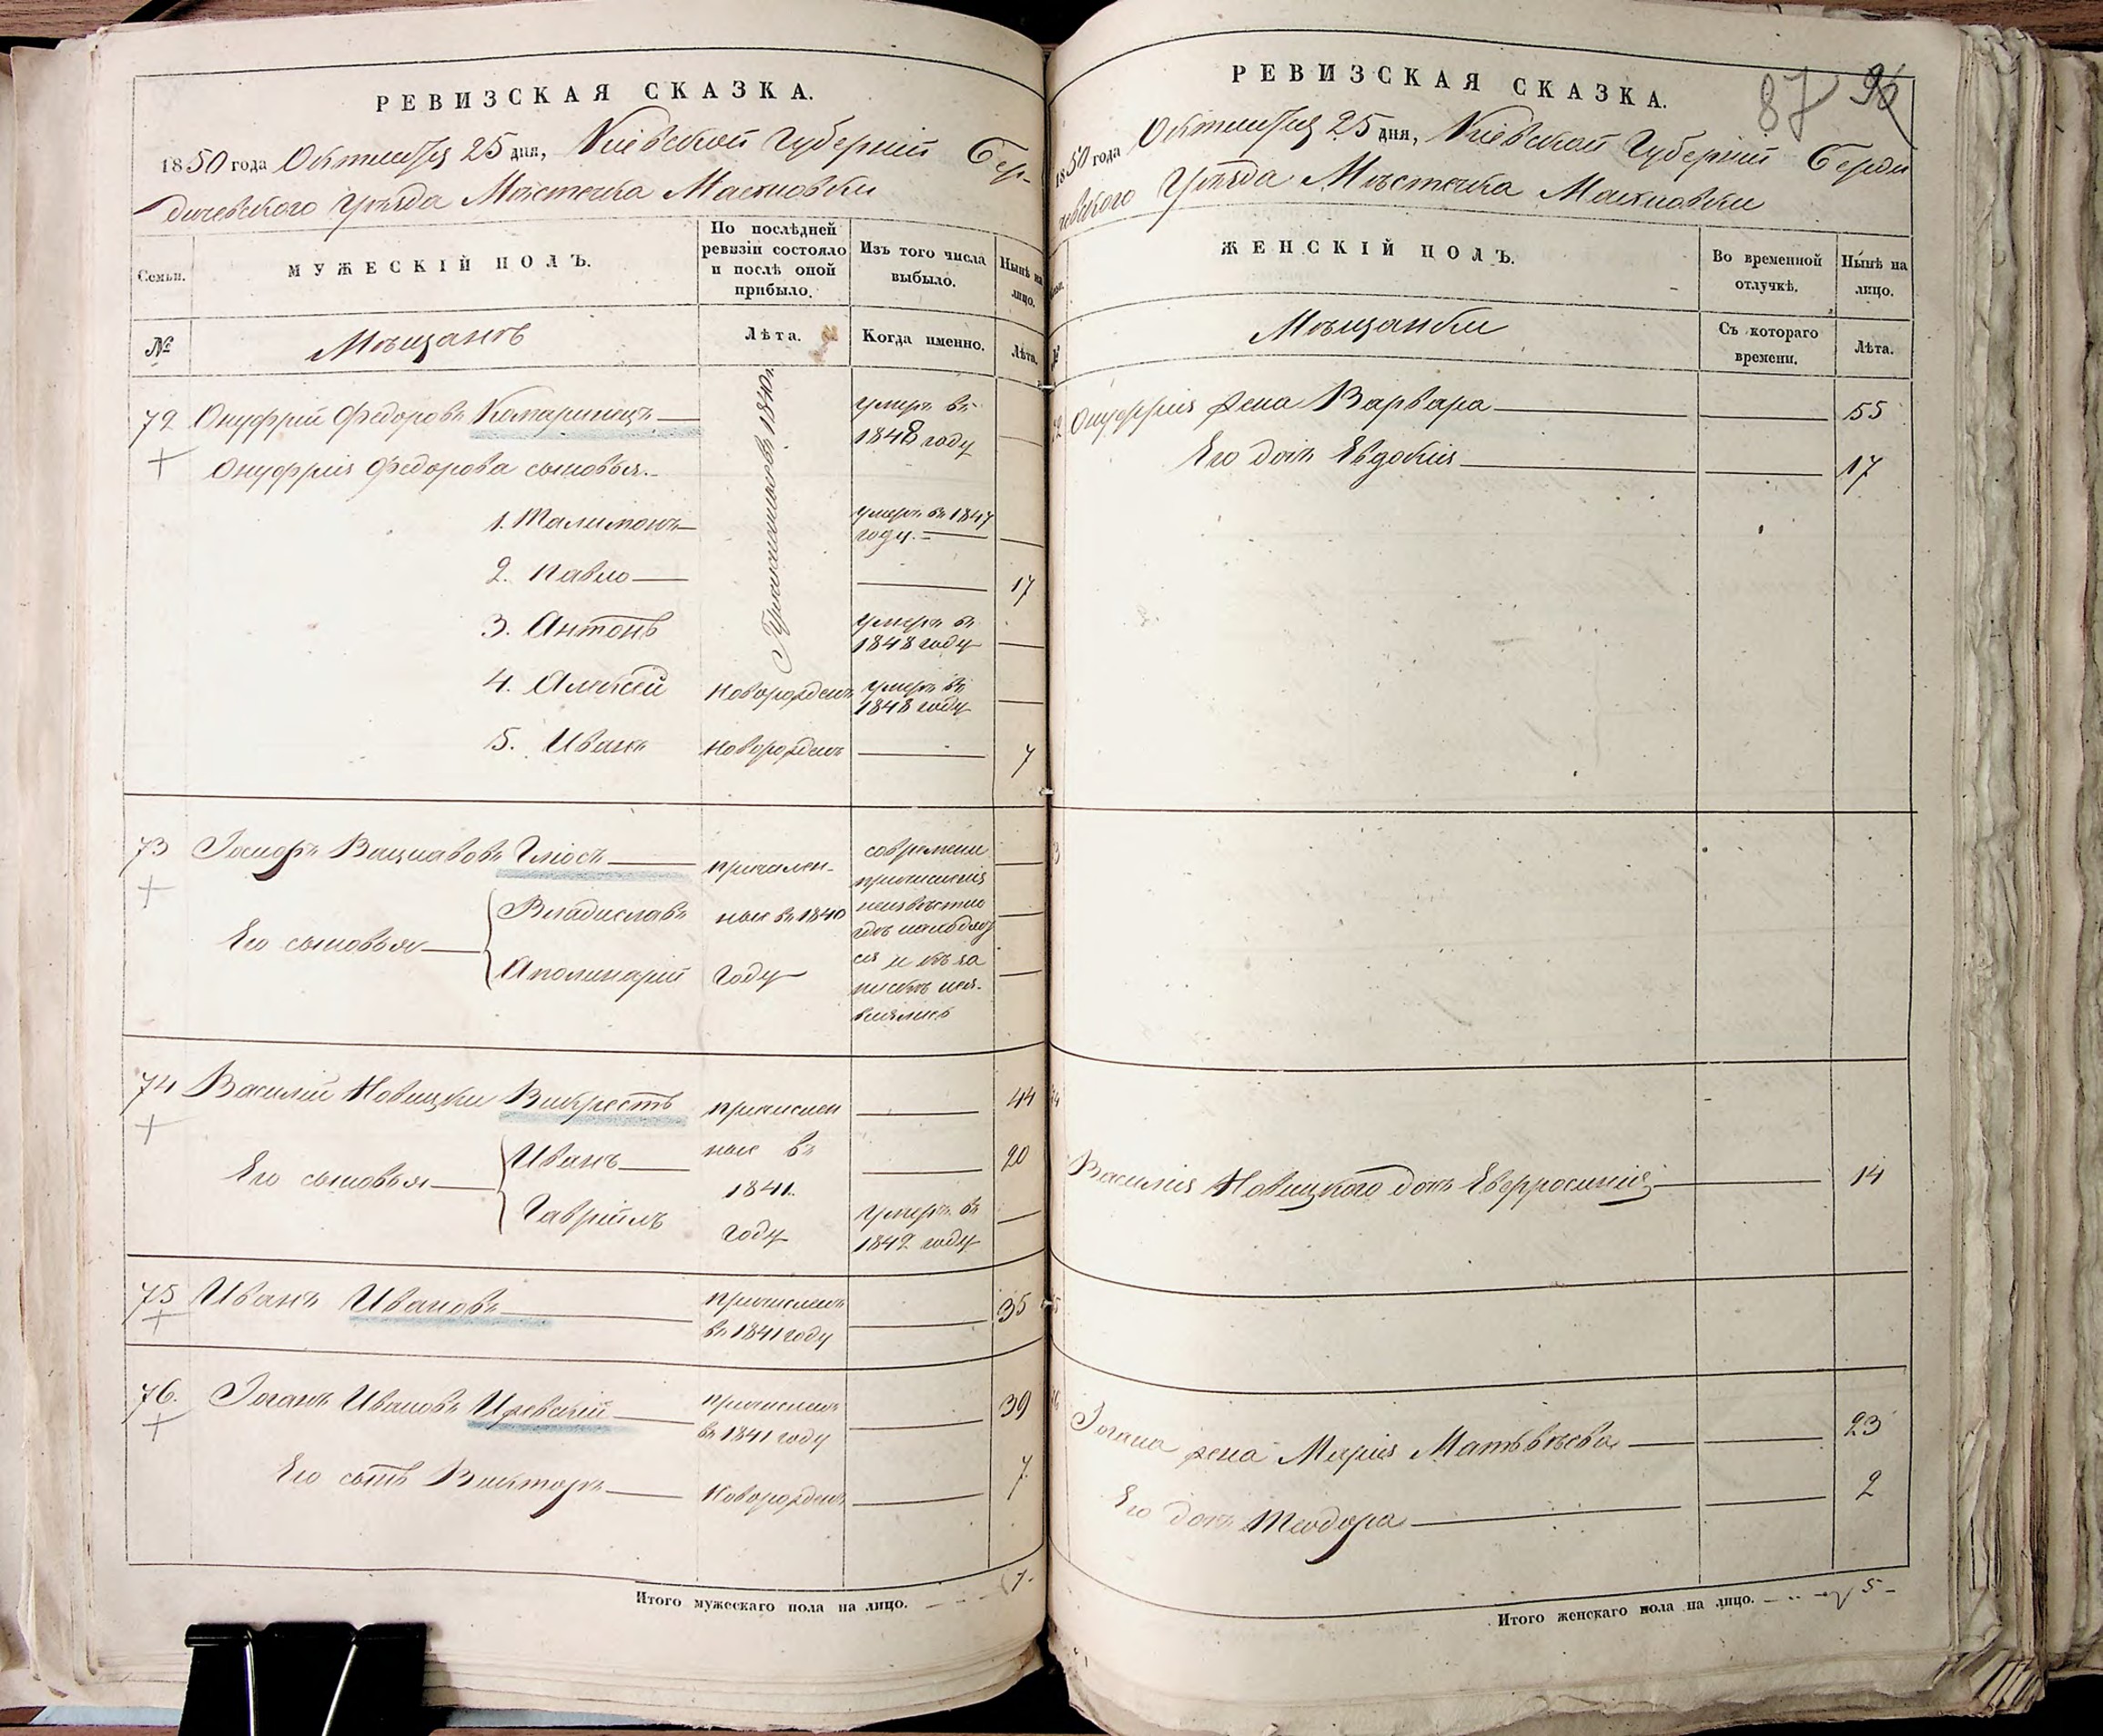 РЕВИЗСКАЯ СКАЗКА.
1850 года Октября 25 дня, Кіевской Губерніи Бер-
дичевского Уѣзда Мѣстечка Махновки
Семьи.
МУЖЕСКІЙ ПОЛЪ.
По послѣдней
ревизіи состояло
и послѣ оной
прибыло.
Изъ того числа
выбыло.
Нынѣ на
лицо.
№
Мѣщанъ
Лѣта.
Когда именно.
Лѣта.
72 Онуфрій Федоровъ Комаринецъ
умеръ въ
1848 году
Онуфрія Федорова сыновья.
1. Талимонъ
умеръ въ 1847
году.
2. Павло 17
3. Антонъ
умеръ въ
1848 году
4. Алексей новорожденъ
умеръ въ
1848 году
5. Иванъ новорожденъ 7
73 Іосифъ Вацлавовъ Глюсъ
Его сыновья
Владиславъ
Аполинарій
причислен-
ные въ 1840
году
современи
причисленія
неизвѣстно
гдѣ находяt
ся и къ за
пискѣ нея-
вились
74 Василій Новицкій Выкрестъ 44
Его сыновья
Иванъ 20
Гаврійлъ
причислен
ные въ
1841.
году
умеръ въ
1849 году
75 Иванъ Ивановъ
причисленъ
въ 1841 году
35
76. Іоганъ Ивановъ
причисленъ
въ 1841 году
39
Его сынъ Викторъ новорожденъ 7
Итого мужескаго пола на лицо. 7
87 96
РЕВИЗСКАЯ СКАЗКА.
1850 года Октября 25 дня, Кіевской Губерніи Берди
чевского Уѣзда Мѣстечка Махновки
ЖЕНСКІЙ ПОЛЪ.
Во временной
отлучкѣ.
Нынѣ на
лицо.
Мѣщанки
Съ котораго
времени.
Лѣта.
Онуфрія жена Варвара 55
Его дочь Евдокія 17
Василія Новицкого дочь Евфросинія 14
Іогана жена Марія Матвѣева 23
Его дочь Теодора 2
Итого женскаго пола на лицо. 5